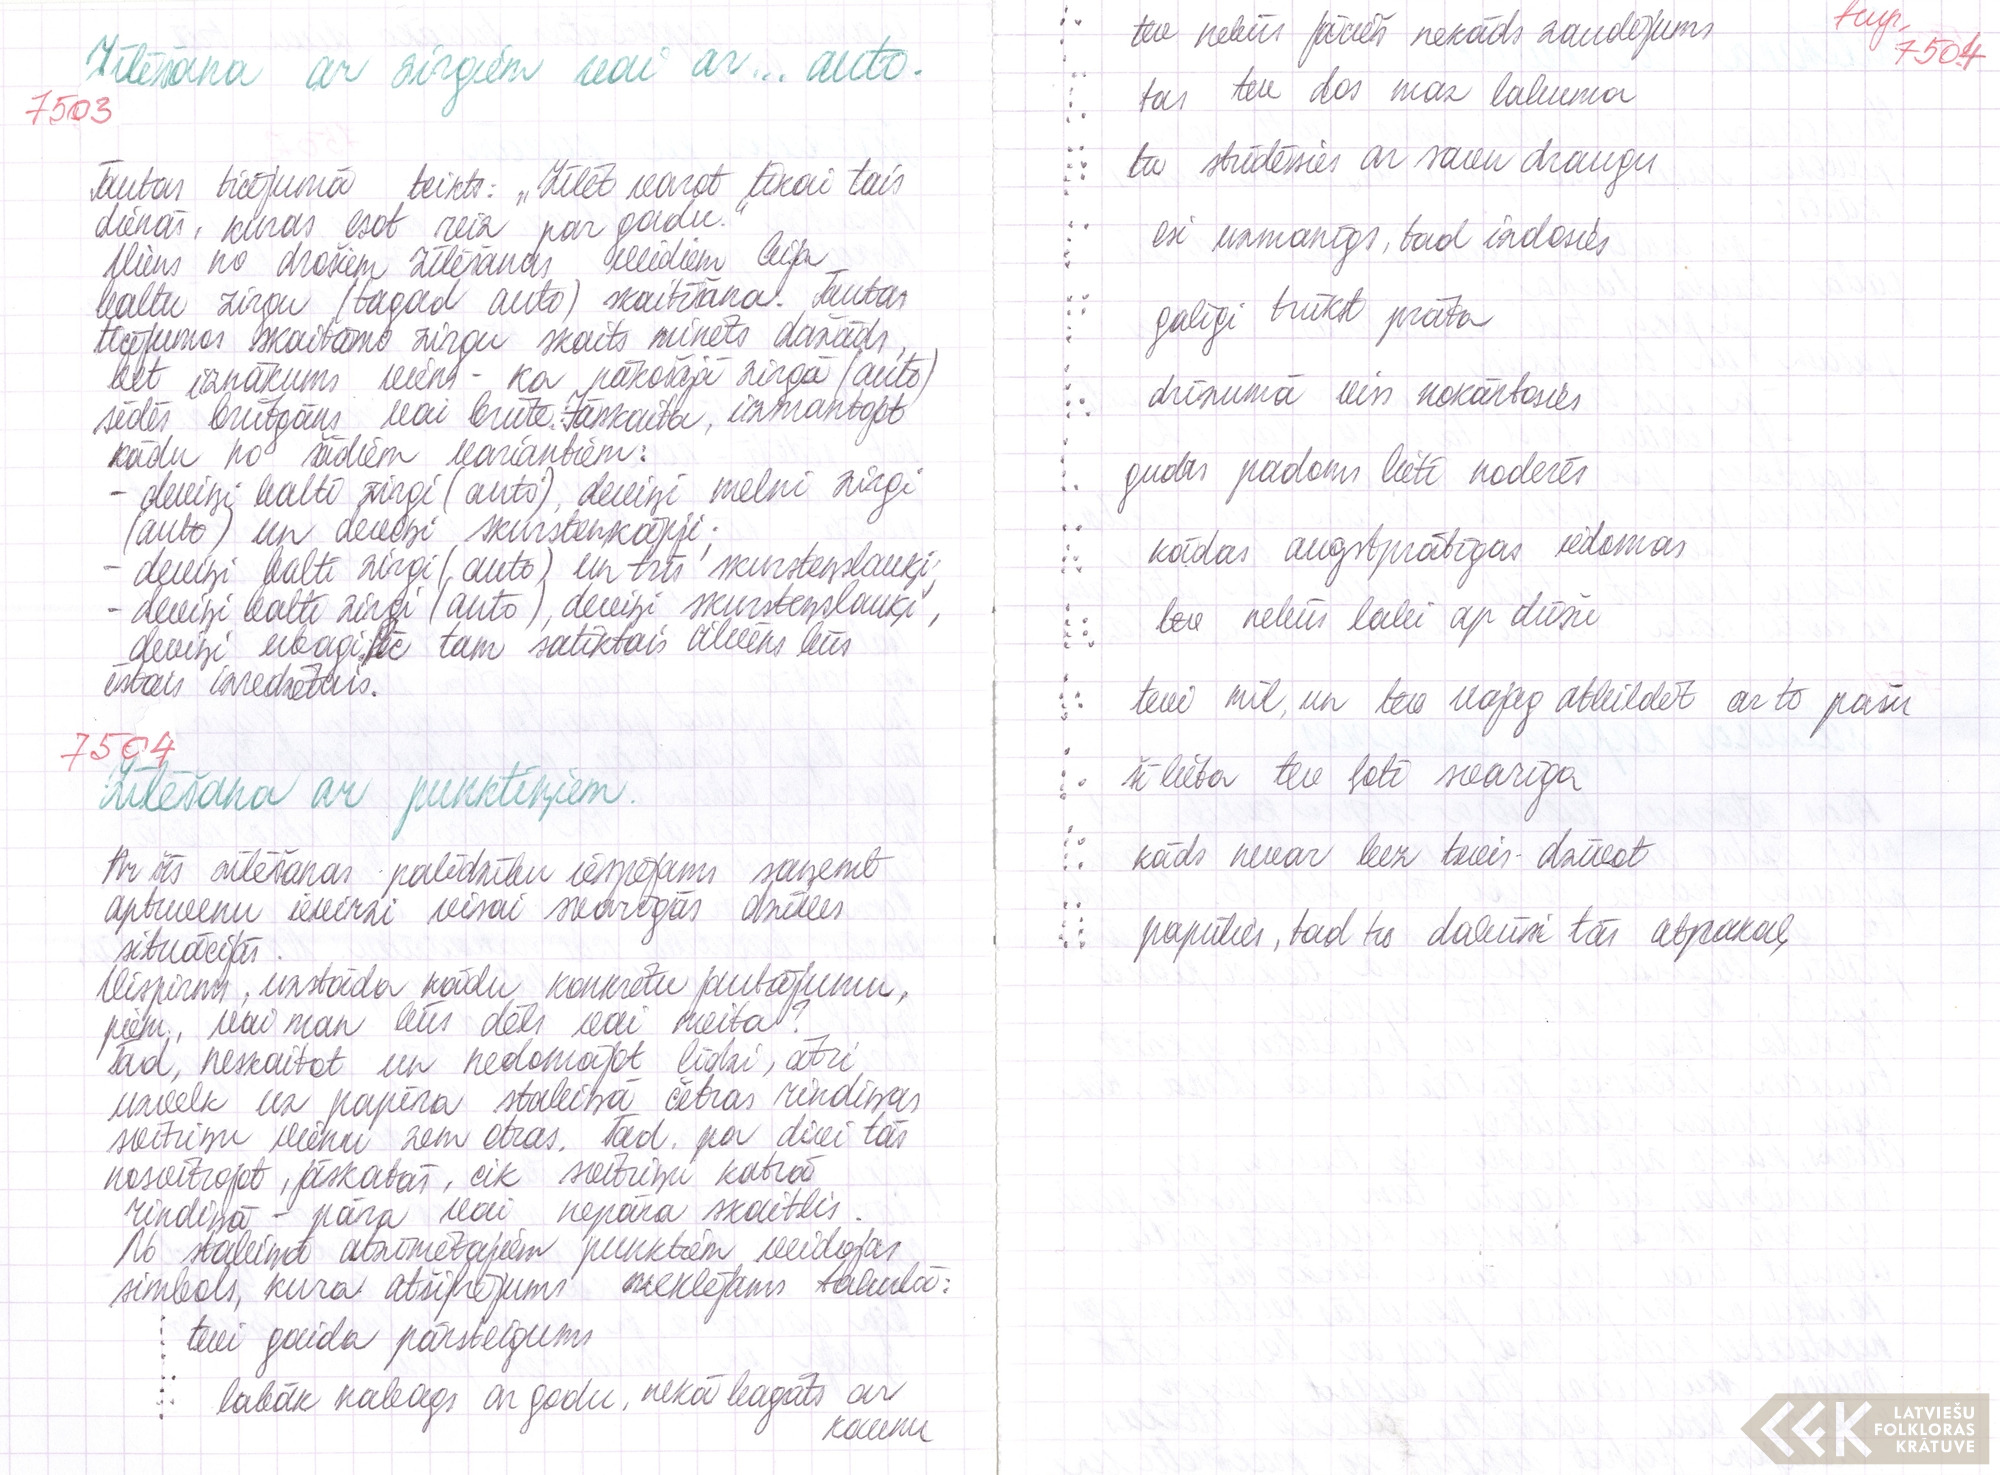 Zīlēšana ar zirgiem vai ar... auto.
7503
Tautas ticējumā teikts: „Zīlēt varot tikai tais
dienās, kuras esot reiz par gadu.“
Viens no drošiem zīlēšanas veidiem bija
baltu zirgu (tagad auto) skaitīšana. Tautas
ticējumos skaitāmo zirgu skaits minēts dažāds,
bet iznākums viens - ka nākošajā zirgā (auto)
sēdēs brūtgāns vai brūte. Jāskaita, izmantojot
kādu no šādiem variantiem:
- deviņi balti zirgi (auto), deviņi melni zirgi
(auto) un deviņi skursteņkāpji;
- deviņi balti zirgi (auto) un trīs skursteņslauķi;
- deviņi balti zirgi (auto), deviņi skursteņslauķi,
deviņi ubagi. Pēc tam satiktais cilvēks būs
īstais izredzētais.
7504
Zīlēšana ar punktiņiem.
Ar šīs zīlēšanas palīdzību iespējams saņemt
aptuvenu ieviržu visai svarīgās dzīves
situācijās.
Vispirms, uzstāda kādu konkrētu jautājumu,
piem., vai man būs dēls vai meita?
Tad, neskaitot un nedomājot līdzi, ātri
uzvelk uz papīra stabiņā četras rindiņas
svītriņu vienu zem otras. Tad, pa divi tās
nosvītrojot, jāskatās, cik svītriņu katrā
rindiņā - pāra vai nepāra skaitlis.
No stabiņā atzīmētajiem punktiem veidojas
simbols, kura atšifrējums meklējams tabulā:
tevi gaida pārsteigums
labāk nabags ar godu, nekā bagāts ar
kaunu
turp.
7504
tev nebūs jācieš nekāds zaudējums
tas tev dos maz labuma
tu strīdēsies ar savu draugu
esi uzmanīgs, tad izdosies
galīgi trūkst prāta
drīzumā viss nokārtosies
gudrs padoms lieti noderēs
kādas augstprātīgas iedomas
tev nebūs labi ap dūšu
tevi mīl, un tev vajag atbildēt ar to pašu
šī lieta tev ļoti svarīga
kāds nevar bez tevis dzīvot
papūlies, tad to dabūsi tās atpakaļ
LATVIEŠU
FOLKLORAS
KRĀTUVE